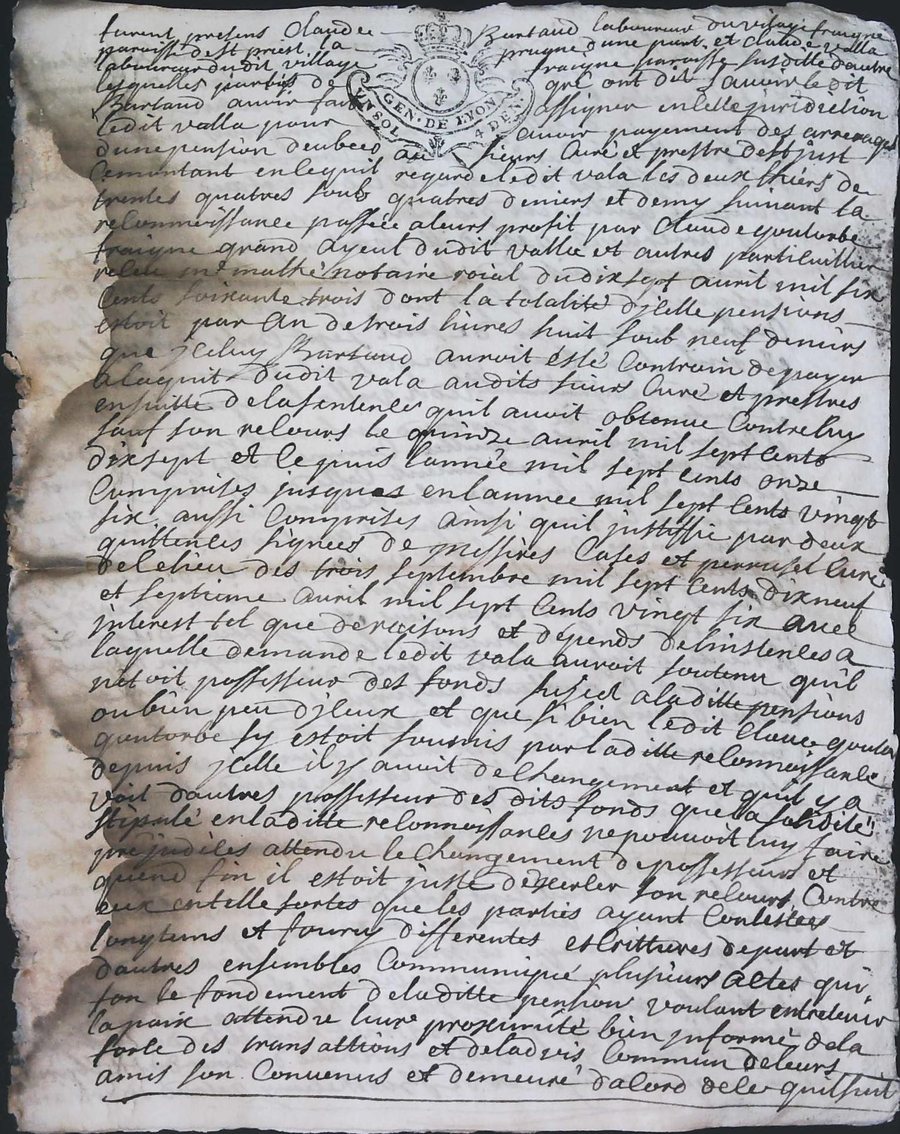 furent presens Claude Bartaud laboureur du village fraigne
paroisse de st priest la prugne d'une part, et claude valla
laboureur dudit village fraigne paroisse susditte d'autre
lesquelles parties de gré ont dit scavoir ledit
Bartaud avoir fait assigner en cette juridiction
ledit valla pour avoir payement des arrerages
d'une pension deubeed au sieurs Curé et prestre de st just
Cemontant en lequil regarde ledit vala les deux thiers de
trentes quatres soubs quatres deniers et demy suivant la
reconnoissance passée a leurs profit par Claude goutorbe
fraigne grand ayeul dudit vallia et autres particuillier
recue me mathé notaire roial du dix sept avril mil six
Cents soixante trois dont la totalité d'jcelle pensions
estoit par an de trois livres huit soub neuf deniers
que jceluy Bartaud auroit esté Contrain de payer
a laquit dudit vala audits sieurs Curé et prestres
ensuitte de la sentence quil avoit obtenue Contre luy
sauf son recours le quinze avril mil sept cents
dix sept et ce puis l'année mil sept cents onze
Comprises jusques en l'annee mil sept Cents vingt
six aussi Comprises ainsi quil justiffie par deux
quittences signees de messires Cases et perrusel Curé
de ce lieu des trois septembre mil sept Cents dix neuf
et septieme avril mil sept Cents vingt six avec
interest tel que de raisons et depends de linstences a
laquelle demande ledit vala auroit soutenu quil
netoit possesseur des fonds sujed a laditte pensions
ou bien peu d'jceux et que si bien ledit Claude goutor
goutorbe sy estoit soumis par laditte reconnoissance
depuis jcelle il y auoit de Changement et quil y a
voit d'autres possesseur des dits fonds que la solidité
stipulé en laditte reconnoissances ne pouvoit luy faire
prejudices attendu le Changement de possesseurs et
quend fin il estoit juste d'exercer son recours Contre
eux en telle sortes que les parties ayant Contestees
longtems et fourny differentes escrittures de part et
d'autres ensembles Communiqué plusieurs actes qui
fon le fondement de laditte pension voulant entretenir
la paix attendre leurs proximité bien informé de la
force des transactions et de l'advis Commun de leurs
amis son Convenus et demeuré d'acord de ce quil suit
GEN. DE LYON
UN SOL
4 DEN.